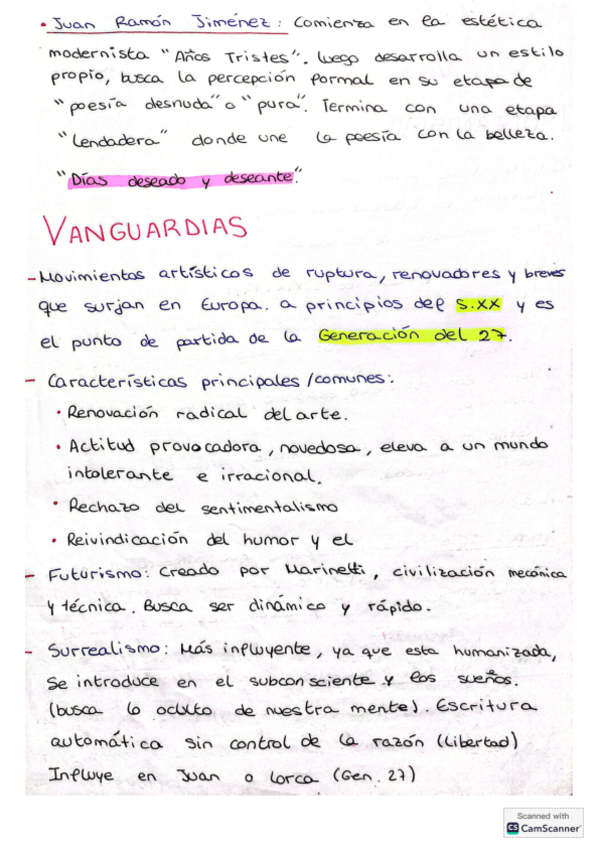 • Juan Ramón Jiménez: Comienza en la estética
modernista "Años Tristes". Luego desarrolla un estilo
propio, busca la percepción formal en su etapa de
"poesía desnuda" o "pura". Termina con una etapa
"Lendadera" donde une la poesía con la belleza.
"Días deseado y deseante".
VANGUARDIAS
- Movimientos artísticos de ruptura, renovadores y breves
que surjan en Europa. a principios del S.XX y es
el punto de partida de la Generación del 27.
- Características principales/comunes:
• Renovación radical del arte.
• Actitud provocadora, novedosa, eleva a un mundo
intolerante e irracional.
• Rechazo del sentimentalismo
• Reivindicación del humor y el
- Futurismo: Creado por Marinetti, civilización mecánica
y técnica. Busca ser dinámico y rápido.
- Surrealismo: Más influyente, ya que esta humanizada,
Se introduce en el subconsciente y los sueños.
(busca lo oculto de nuestra mente). Escritura
automática sin control de la razón (Libertad)
Influye en Juan o Lorca (Gen. 27)
Scanned with
CS CamScanner